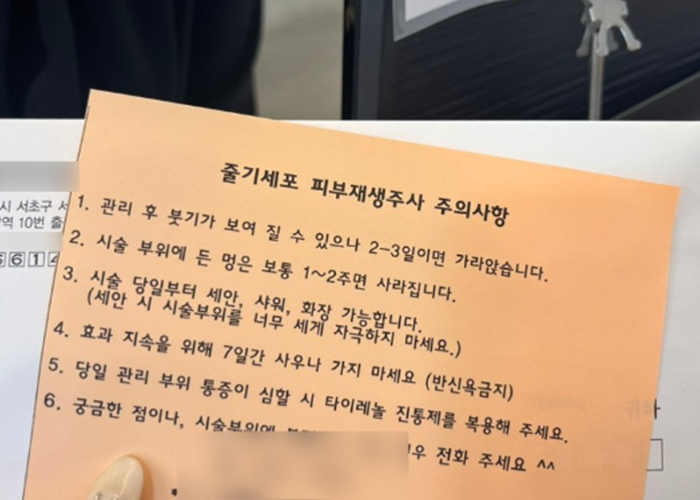 줄기세포 피부재생주사 주의사항
시 서초구
역 10번 출
614
1. 관리 후 붓기가 보여 질 수 있으나 2-3일이면 가라앉습니다.
2. 시술 부위에 든 멍은 보통 1~2주면 사라집니다.
3. 시술 당일부터 세안, 샤워, 화장 가능합니다.
(세안 시 시술부위를 너무 세게 자극하지 마세요.)
4. 효과 지속을 위해 7일간 사우나 가지 마세요 (반신욕금지)
5. 당일 관리 부위 통증이 심할 시 타이레놀 진통제를 복용해 주세요.
6. 궁금한 점이나, 시술부위에 전화 주세요 ^^